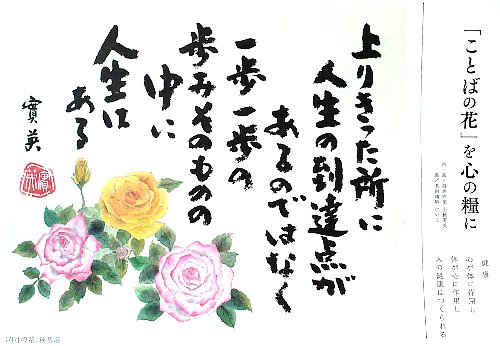 「ことばの花」を心の糧に
健康
心が体に作用し
体が心に作用し
人の健康はつくられる
上りきった所に
人生の到達点が
あるのではなく
一歩一歩の
歩みそのものの
中に
人生は
ある
實英
10月の花、秋薔薇